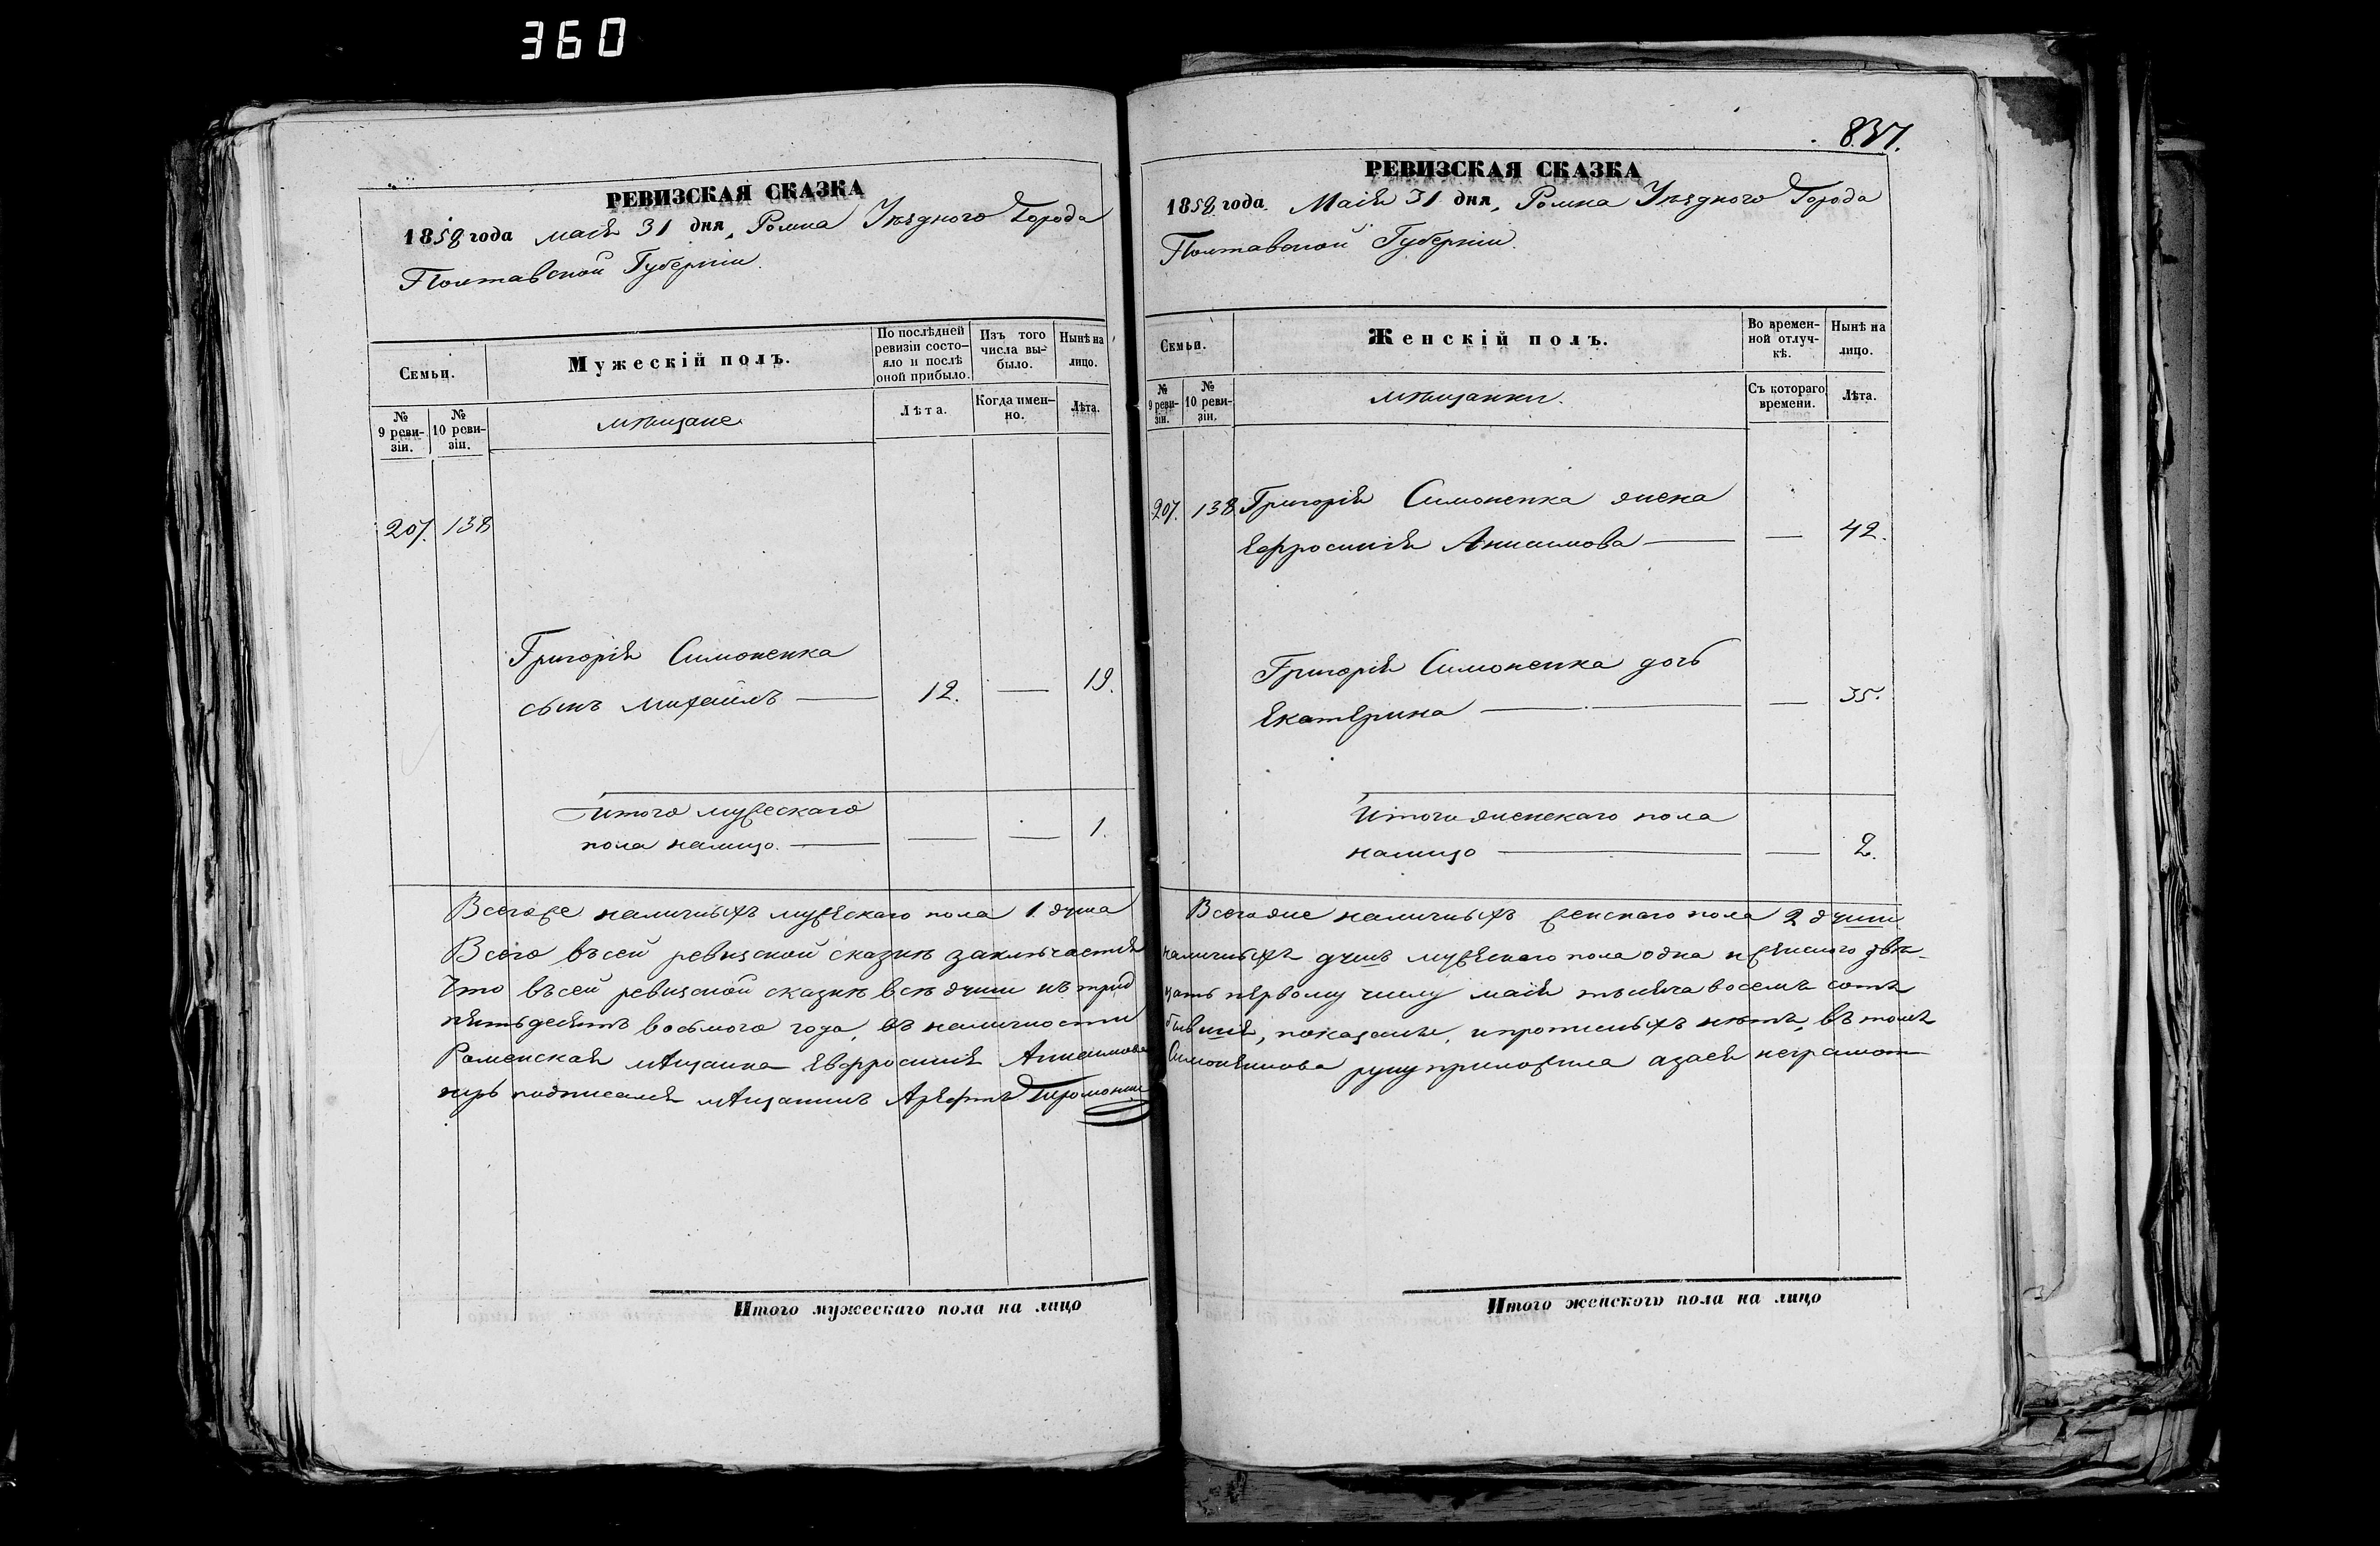 360
РЕВИЗСКАЯ СКАЗКА
1858 года маія 31 дня, Ромна Уѣзднаго Города
Полтавской Губерніи.
Семьи.
Мужескій полъ.
По послѣдней ревизіи состояло и послѣ оной прибыло.
Изъ того числа выбыло.
Нынѣ на лицо.
№ 9 ревизіи.
№ 10 ревизіи.
мѣщане
Лѣта.
Когда именно.
Лѣта.
207. 138
Григорія Симоненка
сынъ Михаилъ — 12. — 19.
Итого мужескаго
пола налицо. — — — 1.
Всегоже наличныхъ мужескаго пола 1. душа
Всего въсей ревизской сказкѣ заключается
Что въсей ревизской сказкѣ всѣ души къ трид
пятьдесятъ восьмого года, въ наличности
Роменская мѣщанка Евфросинія Анисимова
ихъ подписался мѣщанинъ
837.
РЕВИЗСКАЯ СКАЗКА
1858 года Маія 31 дня, Ромна Уѣзднаго Города
Полтавской Губерніи.
Семьи.
Женскій полъ.
Во временной отлучкѣ.
Нынѣ на лицо.
№ 9 ревизіи.
№ 10 ревизіи.
мѣщанки.
Съ котораго времени.
Лѣта.
207. 138 Григорія Симоненка жена
Ефросинія Анисимова — — 42.
Григорія Симоненка дочь
Екатерина — — 35.
Итого женскаго пола
налицо — — 2.
Всегоже наличныхъ женскаго пола 2 души
наличныхъ душъ мужескаго пола одна иженскаго двѣ
цать первому числу маія тысяча восемъ сотъ
бывшія, показаны, ипрописныхъ нѣтъ, въ томъ
Симоненкова руку приложила азаея неграмот
Итого мужескаго пола на лицо
Итого женского пола на лицо